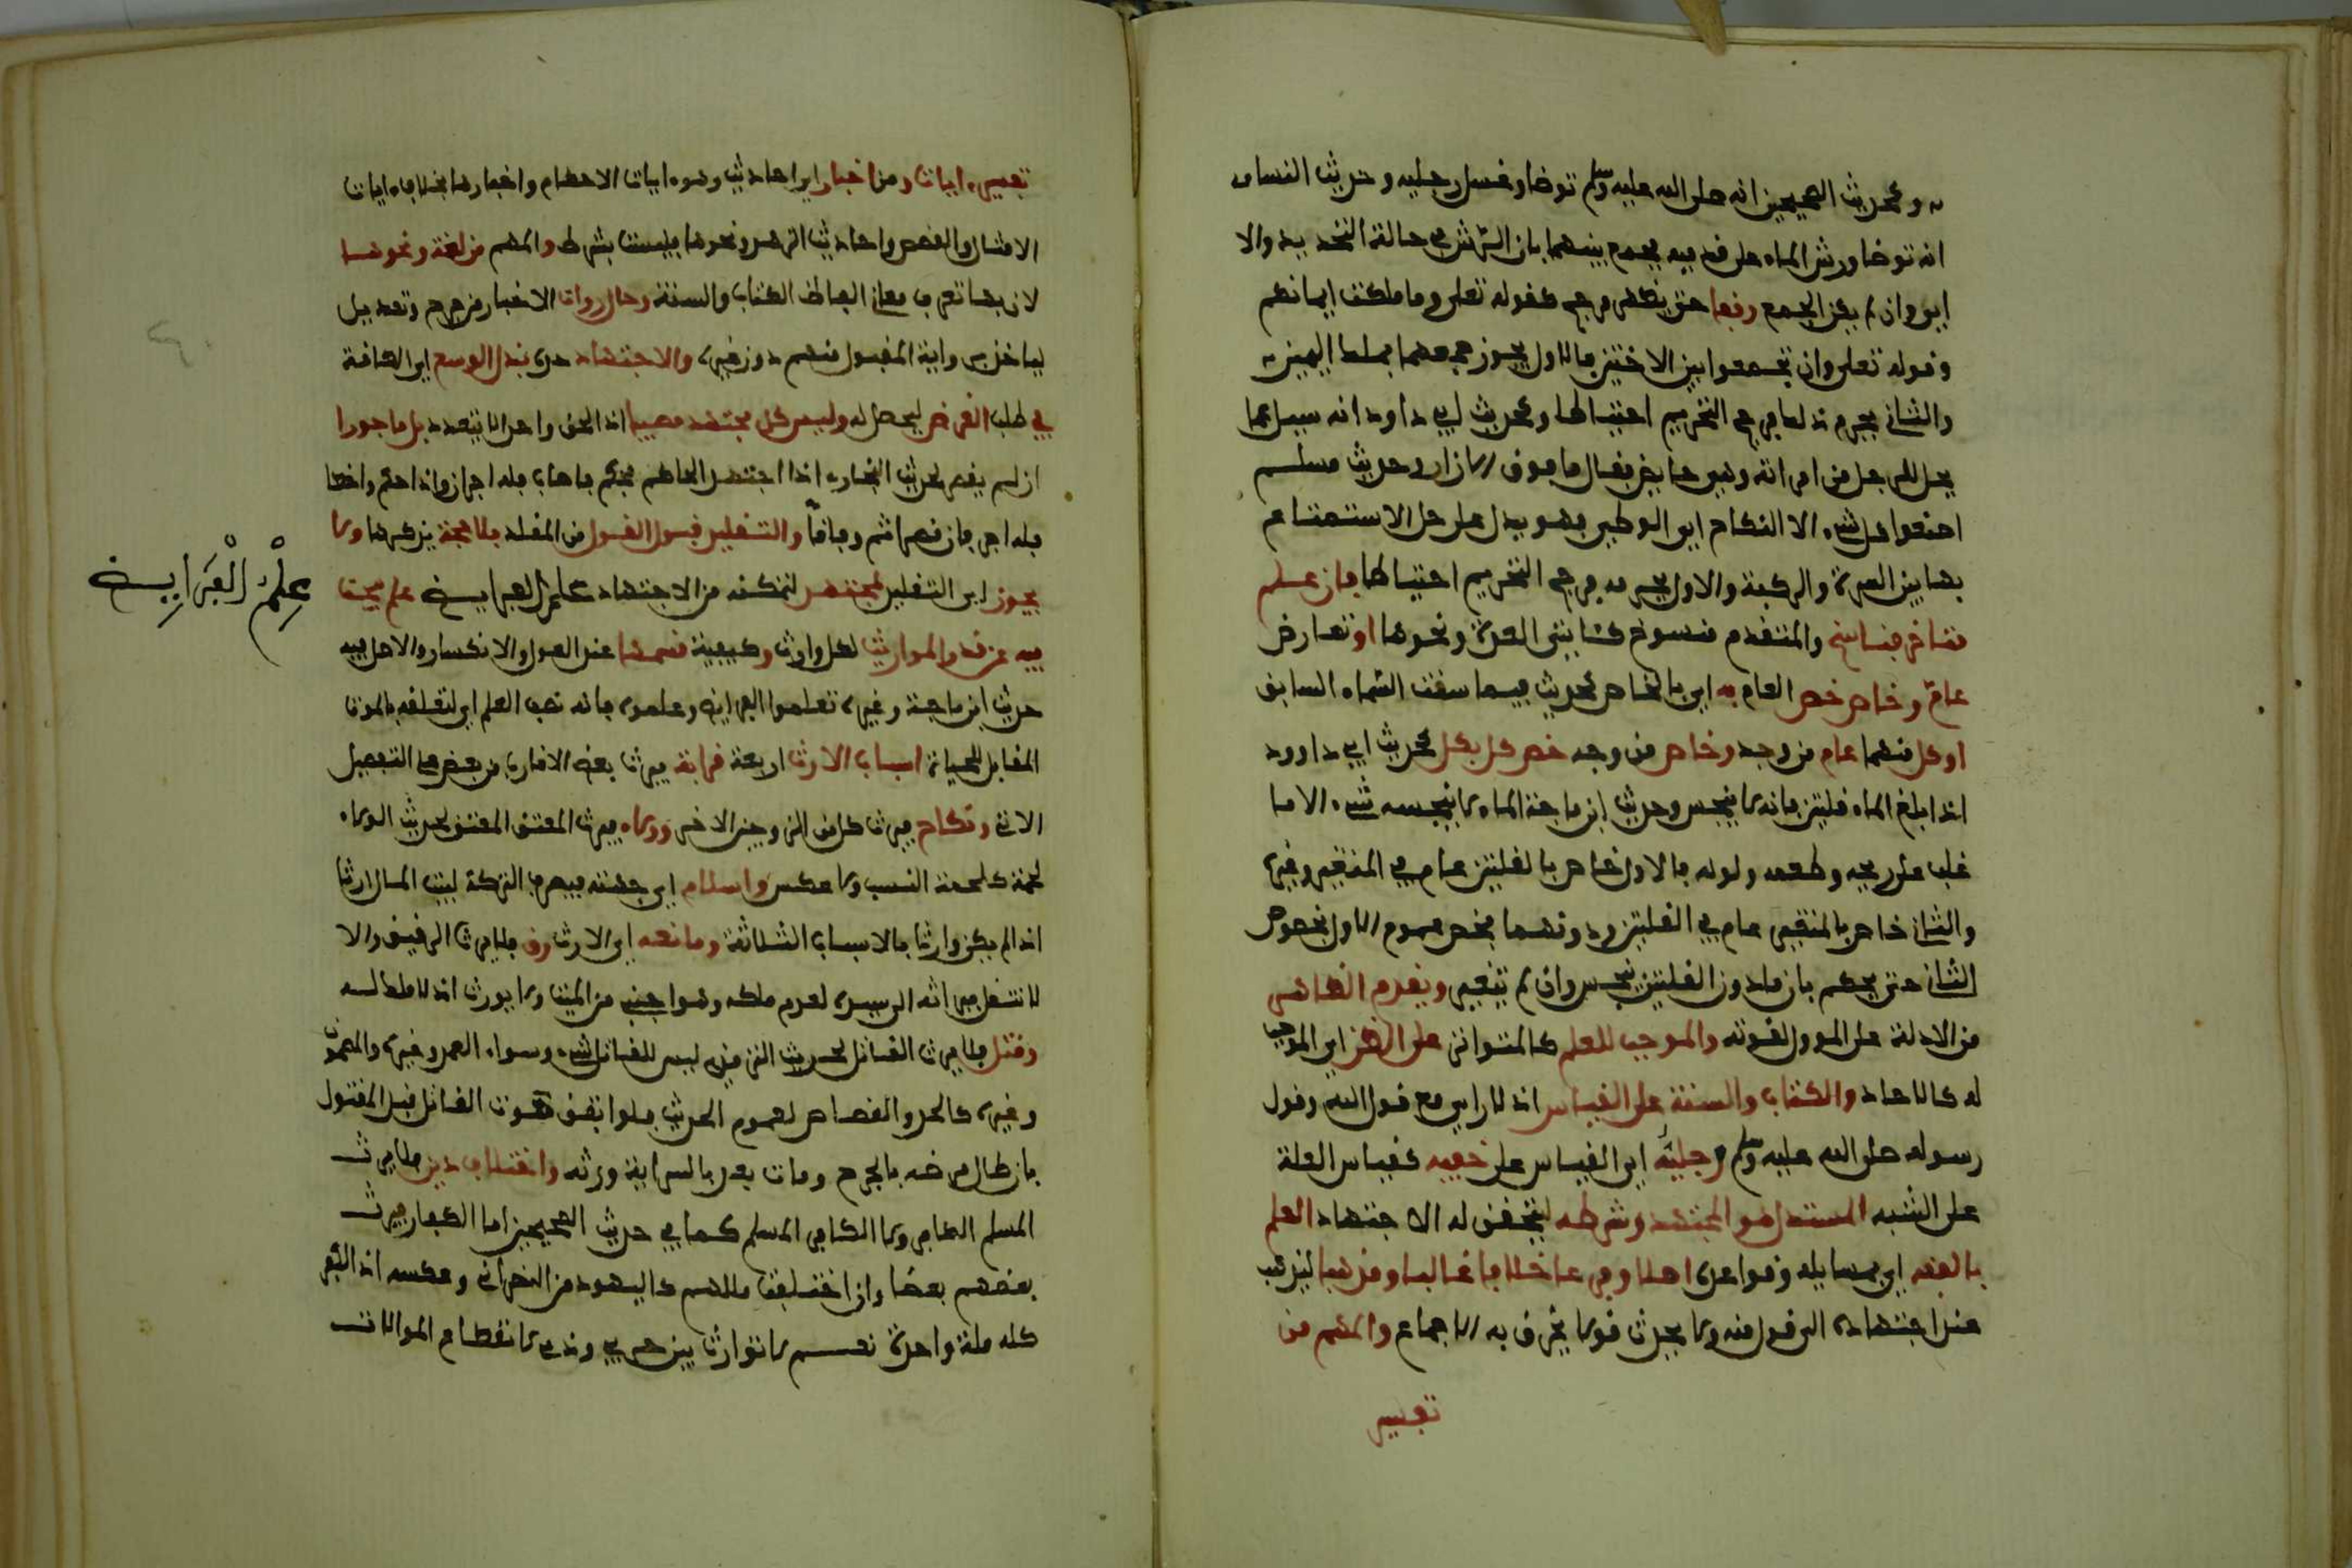 به وكحديث الصحيحين انه صلى الله عليه وسلم توضا وغسل رجليه وحديث النساءى
انه توضا ورش الماء على قدميه يجمع بينهما بان الرش في حالة التجديد والا
اي وان لم يمكن الجمع وقفا حتى يظهر مرجح كقوله تعلى وما ملكت ايمانكم
وقوله تعلى وان تجمعوا بين الاختين فالاول يجوز جمعهما بملك اليمين
والثاني يحرم ذلك فرجح التحريم احتياطا وكحديث ابي داود انه سيل عما
يحل للرجل من امراته وهي حايض فقال ما فوق الازار وحديث مسلم
اصنعوا كل شيء الا النكاح اي الوطي فهو يدل على حل الاستمتاع
بما بين السرة والركبة والاول يحرمه فرجح التحريم احتياطا فان علم
متاخر فناسخ والمتقدم منسوخ كئايتي العدة ونحوها او تعارض
عام وخاص خص العام به اي بالخاص كحديث فيما سقت السماء السابق
او كل منهما عام من وجه وخاص من وجه خص كل بكل كحديث ابي داوود
اذا بلغ الماء قلتين فانه لا ينجس وحديث ابن ماجة الماء لا ينجسه شيء الا ما
غلب على ريحه وطعمه ولونه فالاول خاص بالقلتين عام في المتغير وغيره
والثاني خاص بالمتغير عام في القلتين ودونهما فخص عموم الاول بخصوص
الثاني حتى يحكم بان ما دون القلتين ينجس وان لم يتغير ويقدم الظاهر
من الادلة على الموول لقوته والموجب للعلم كالمتواتر على الظن اي الموجب
له كالاحاد والكتاب والسنة على القياس اذ لا راي مع قول الله وقول
رسوله صلى الله عليه وسلم وجليه اي القياس على خفيه كقياس العلة
على الشبه المستدل هو المجتهد وشرطه ليتحقق له الاجتهاد العلم
بالفقه اي بمسايله وقواعده اصلا وفرعا خلافا غالبا ومذهبا ليذهب
عند اجتهاده الى قول منه ولا يحدث قولا يخرق به الاجماع والمهم من
تفسير
تفسير ءايات ومن اخبار اي احاديث وهو ءايات الاحكام واخبارها بخلاف ءايات
الامثال والقصص واحاديث الزهد ونحوها فليست بشرط والمهم من لغة ونحوها
لان بها تعرف معاني الفاظ الكتاب والسنة وحال روات الاخبار من جرح وتعديل
لياخذ برواية المقبول منهم دون غيره والاجتهاد حده بذل الوسع اي الطاقة
في طلب الغرض ليحصل له وليس كل مجتهد مصيبا اذ الحق واحد لا يتعدد بل ماجورا
ان لم يقصر لحديث البخاري اذا اجتهد الحاكم فحكم فاصاب فله اجران واذا حكم واخطا
فله اجر فان قصر اثم وفاقا والتقليد قبول القول من المقلد بلا حجة يذكرها ولا
يجوز اي التقليد لمجتهد لتمكنه من الاجتهاد علم الفرايض علم يبحث
علم الفرايض
فيه عن قدر المواريث لكل وارث وكيفية قسمها عند العول والانكسار والاصل فيه
حديث ابن ماجة وغيره تعلموا الفرايض وعلموه فانه نصف العلم اي لتعلقه بالموت
المقابل للحياة اسباب الارث اربعة قرابة فيرث بعض الاقارب من بعض على التفصيل
الاتي ونكاح فيرث كل من الزوجين الاخر وولاء فيرث المعتق المعتق لحديث الولاء
لحمة كلحمة النسب ولا عكس واسلام اي جهته فيصرف التركة لبيت المال ارثا
اذا لم يكن وارث بالاسباب الثلاثة ومانعه اي الارث رق فلا يرث الرقيق والا
لانتقل ميراثه الى سيده لعدم ملكه وهو اجنبي من الميت ولا يورث اذ لا ملك له
وقتل فلا يرث القاتل لحديث الترمذي ليس للقاتل شيء وسواء العمد وغيره والمضمون
وغيره كالحد والقصاص لعموم الحديث فلو اتفق موت القاتل قبل المقتول
بان طال مرضه بالجرح ومات بعده بالسراية ورثه واختلاف دين فلا يرث
المسلم الكافر ولا الكافر المسلم كما في حديث الصحيحين اما الكفار فيرث
بعضهم بعضا وان اختلفت مللهم كاليهود من النصراني وعكسه اذ الكفر
كله ملة واحدة نعم لا توارث بين حربي وذمي لانقطاع الموالات